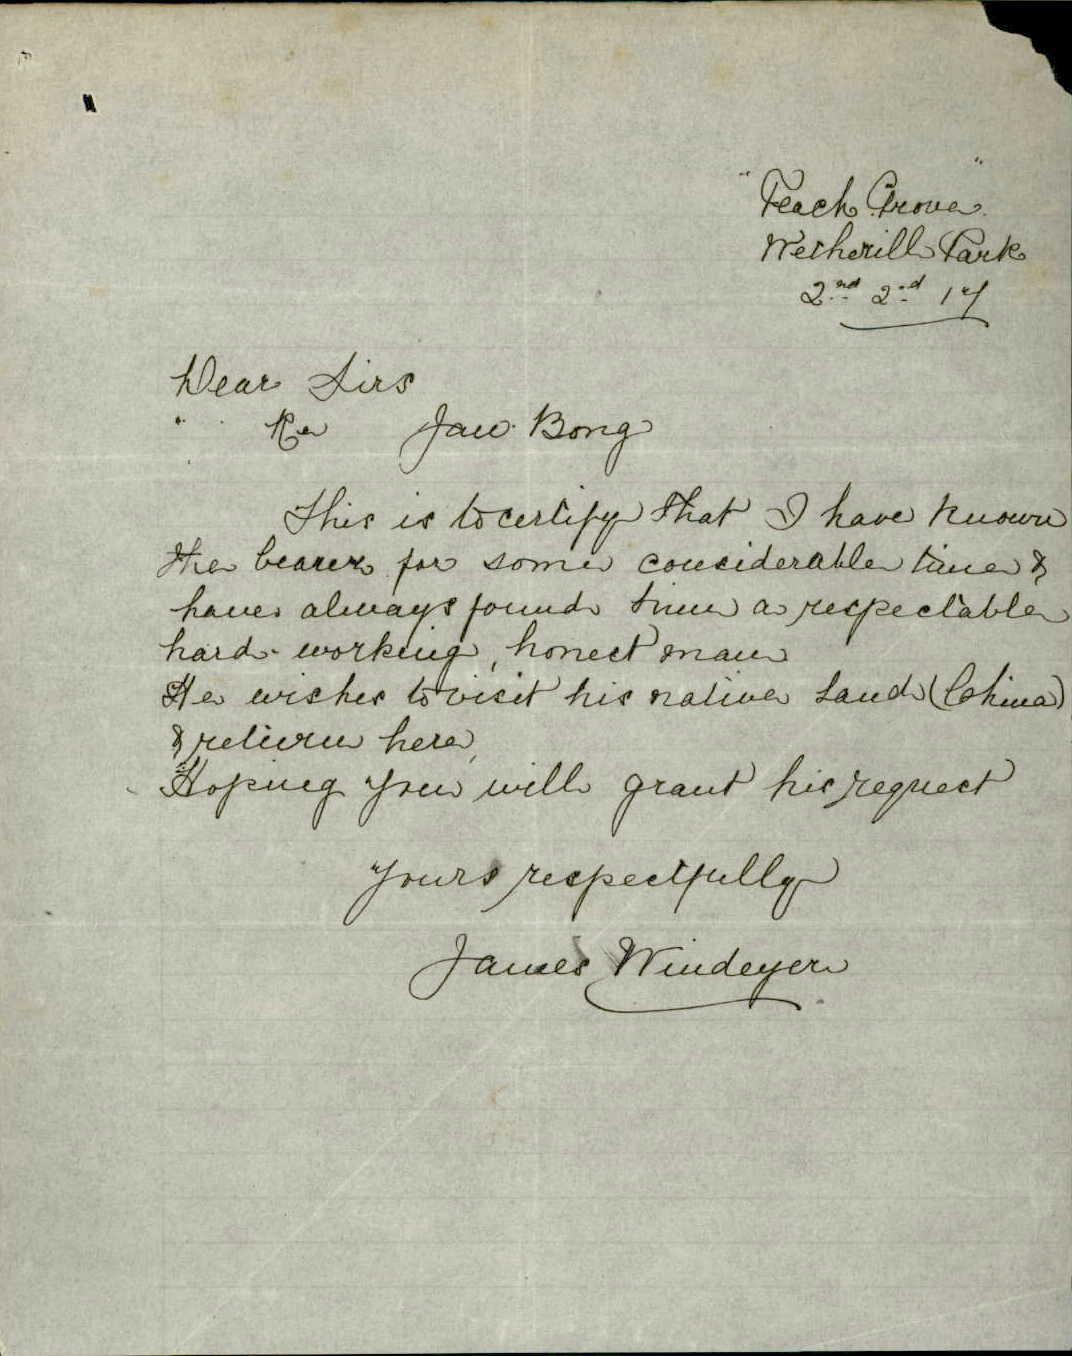 "Peach Grove"
Wetherill Park
2nd 2nd 17
Dear Sirs
" Re Jaw Bong
This is to certify that I have known
the bearer for some considerable time &
have always found him a respectable
hard-working, honest man
He wishes to visit his native land (China)
& return here,
Hoping you will grant his request
Yours respectfully
James Windeyer